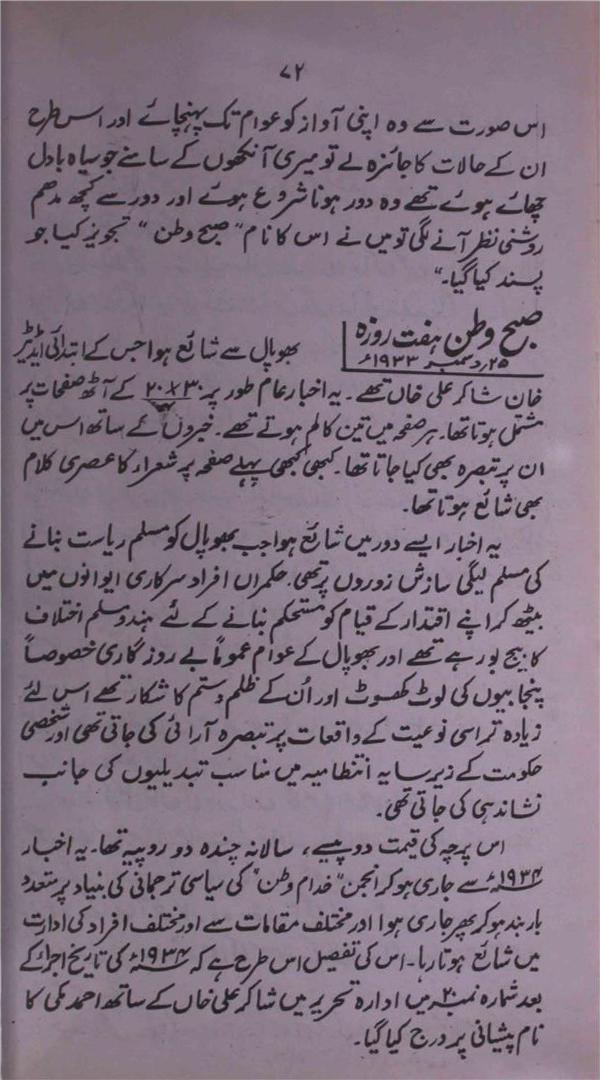 ۷۲
اس صورت سے وہ اپنی آواز کو عوام تک پہنچائے اور اس طرح
ان کے حالات کا جائزہ لے تو میری آنکھوں کے سامنے جو سیاہ بادل
چھائے ہوئے تھے وہ دور ہونا شروع ہوئے اور دور سے کچھ مدھم
روشنی نظر آنے لگی تو میں نے اس کا نام "صبح وطن" تجویز کیا جو
پسند کیا گیا۔"
صبح وطن ہفت روزہ
۲۵؍ دسمبر ۱۹۳۳ء
بھوپال سے شائع ہوا جس کے ابتدائی ایڈیٹر
خان شاکر علی خاں تھے۔ یہ اخبار عام طور پر ۳۰×۲۰ کے آٹھ صفحات پر
مشتمل ہوتا تھا۔ ہر صفحہ میں تین کالم ہوتے تھے۔ خبروں کے ساتھ اس میں
ان پر تبصرہ بھی کیا جاتا تھا۔ کبھی کبھی پہلے صفحہ پر شعراء کا عصری کلام
بھی شائع ہوتا تھا۔
یہ اخبار ایسے دور میں شائع ہوا جب بھوپال کو مسلم ریاست بنانے
کی مسلم لیگی سازش زوروں پر تھی۔ حکمراں افراد سرکاری ایوانوں میں
بیٹھ کر اپنے اقتدار کے قیام کو مستحکم بنانے کے لئے ہندو مسلم اختلاف
کا بیج بو رہے تھے اور بھوپال کے عوام عموماً بے روزگاری خصوصاً
پنجابیوں کی لوٹ کھسوٹ اور اُن کے ظلم و ستم کا شکار تھے اس لئے
زیادہ تر اسی نوعیت کے واقعات پر تبصرہ آرائی کی جاتی تھی اور شخصی
حکومت کے زیر سایہ انتظامیہ میں مناسب تبدیلیوں کی جانب
نشاندہی کی جاتی تھی۔
اس پرچہ کی قیمت دو پیسے، سالانہ چندہ دو روپیہ تھا۔ یہ اخبار
۱۹۳۴ء سے جاری ہو کر انجمن "خدام وطن" کی سیاسی ترجمانی کی بنیاد پر متعدد
بار بند ہو کر پھر جاری ہوا اور مختلف مقامات سے اور مختلف افراد کی ادارت
میں شائع ہوتا رہا۔ اس کی تفصیل اس طرح ہے کہ ۱۹۳۴ء کی تاریخ اجراء کے
بعد شمارہ نمبر ۲ میں ادارہ تحریر میں شاکر علی خاں کے ساتھ احمد مکی کا
نام پیشانی پر درج کیا گیا۔